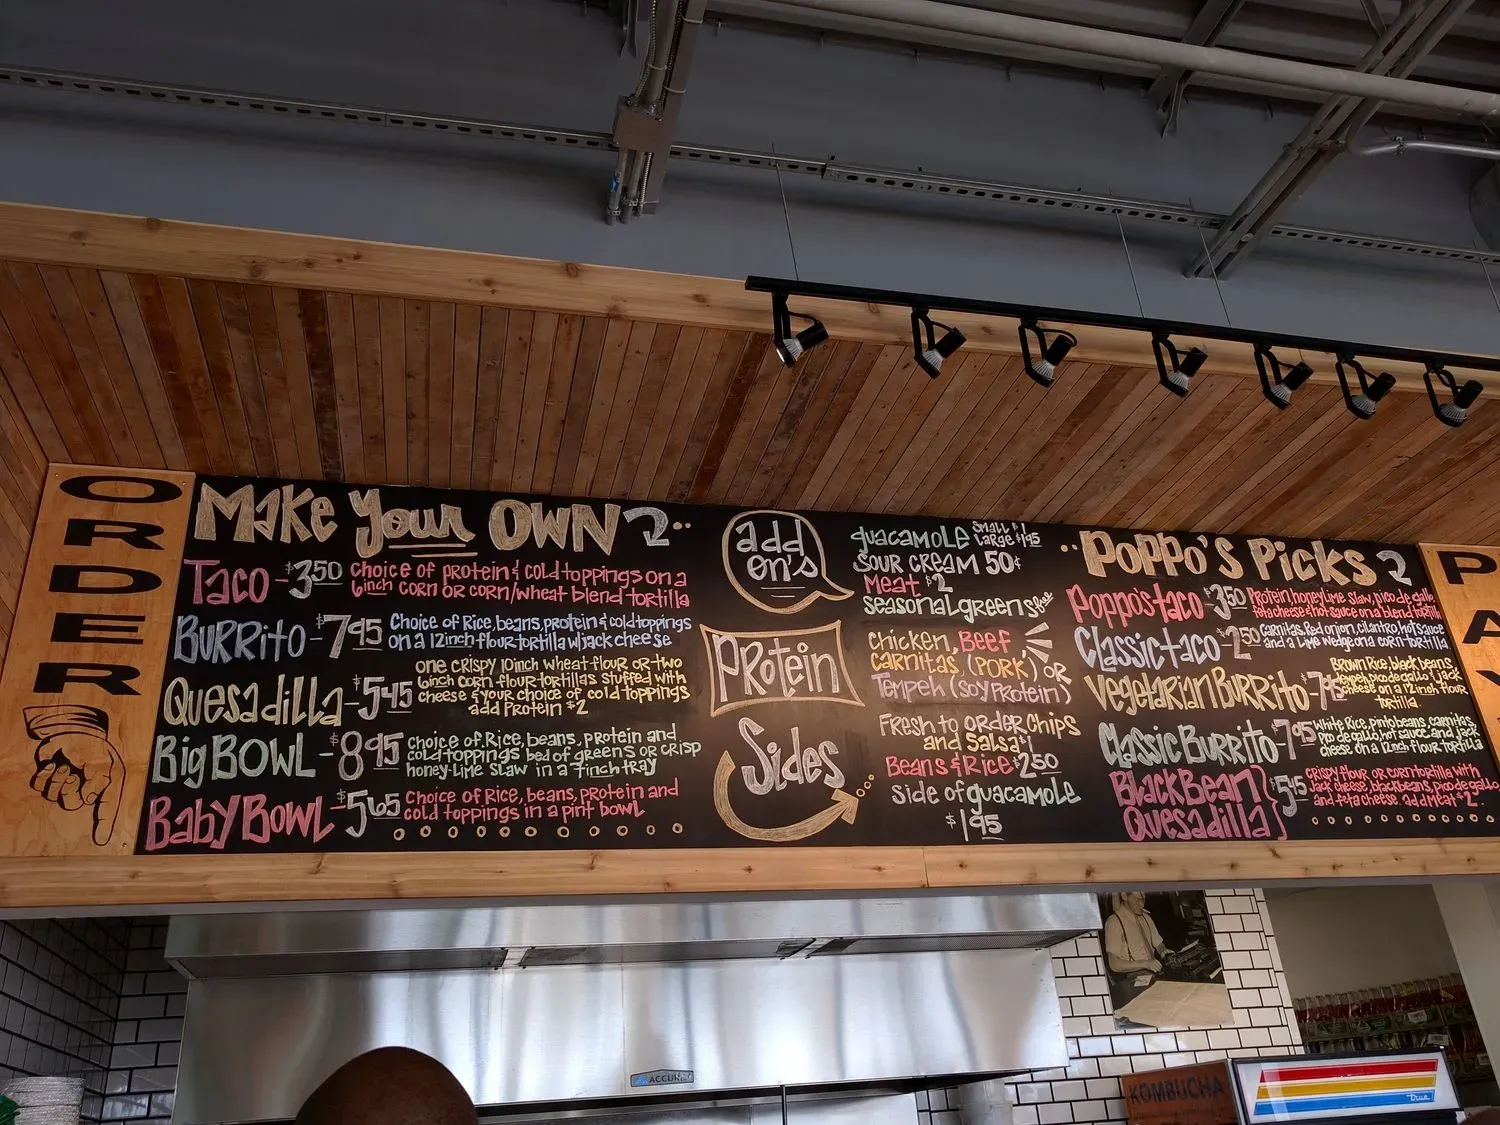 ORDER
Make Your OWN
Taco - $3.50 Choice of protein & cold toppings on a
6inch corn or corn/wheat blend tortilla
Burrito - $7.95 Choice of Rice, beans, protein & cold toppings
on a 12inch flour tortilla w/jack cheese
Quesadilla - $5.45 one crispy 10inch wheat flour or two
6inch corn flour tortillas stuffed with
cheese & your choice of cold toppings
add protein $2
Big BOWL - $8.95 choice of Rice, beans, protein and
cold toppings bed of greens or crisp
honey-lime slaw in a 7inch tray
Baby BOWL - $5.65 Choice of Rice, beans, protein and
cold toppings in a pint bowl
add
on's
guacamole small $1
large $1.95
sour cream 50¢
Meat $2
seasonal greens free
Protein
chicken, Beef
carnitas (pork) or
Tempeh (soy protein)
Sides
Fresh to order Chips
and Salsa $1
Beans & Rice $2.50
side of guacamole
$1.95
Poppo's Picks
Poppo's taco - $3.50 protein, honey lime slaw, pico de gallo
feta cheese & hot sauce on a blend tortilla
Classic taco - $2.50 carnitas, Red onion, cilantro, hot sauce
and a Lime wedge on a corn tortilla
Vegetarian Burrito - $7.95 Brown Rice, black beans,
tempeh, pico de gallo & jack
cheese on a 12inch flour
tortilla
Classic Burrito - $7.95 White Rice, pinto beans, carnitas,
pico de gallo, hot sauce, and jack
cheese on a 12inch flour tortilla
Black Bean
Quesadilla $5.45 crispy flour or corn tortilla with
jack cheese, black beans, pico de gallo,
and feta cheese. add meat $2
PAY
ACCUREX
KOMBUCHA
true